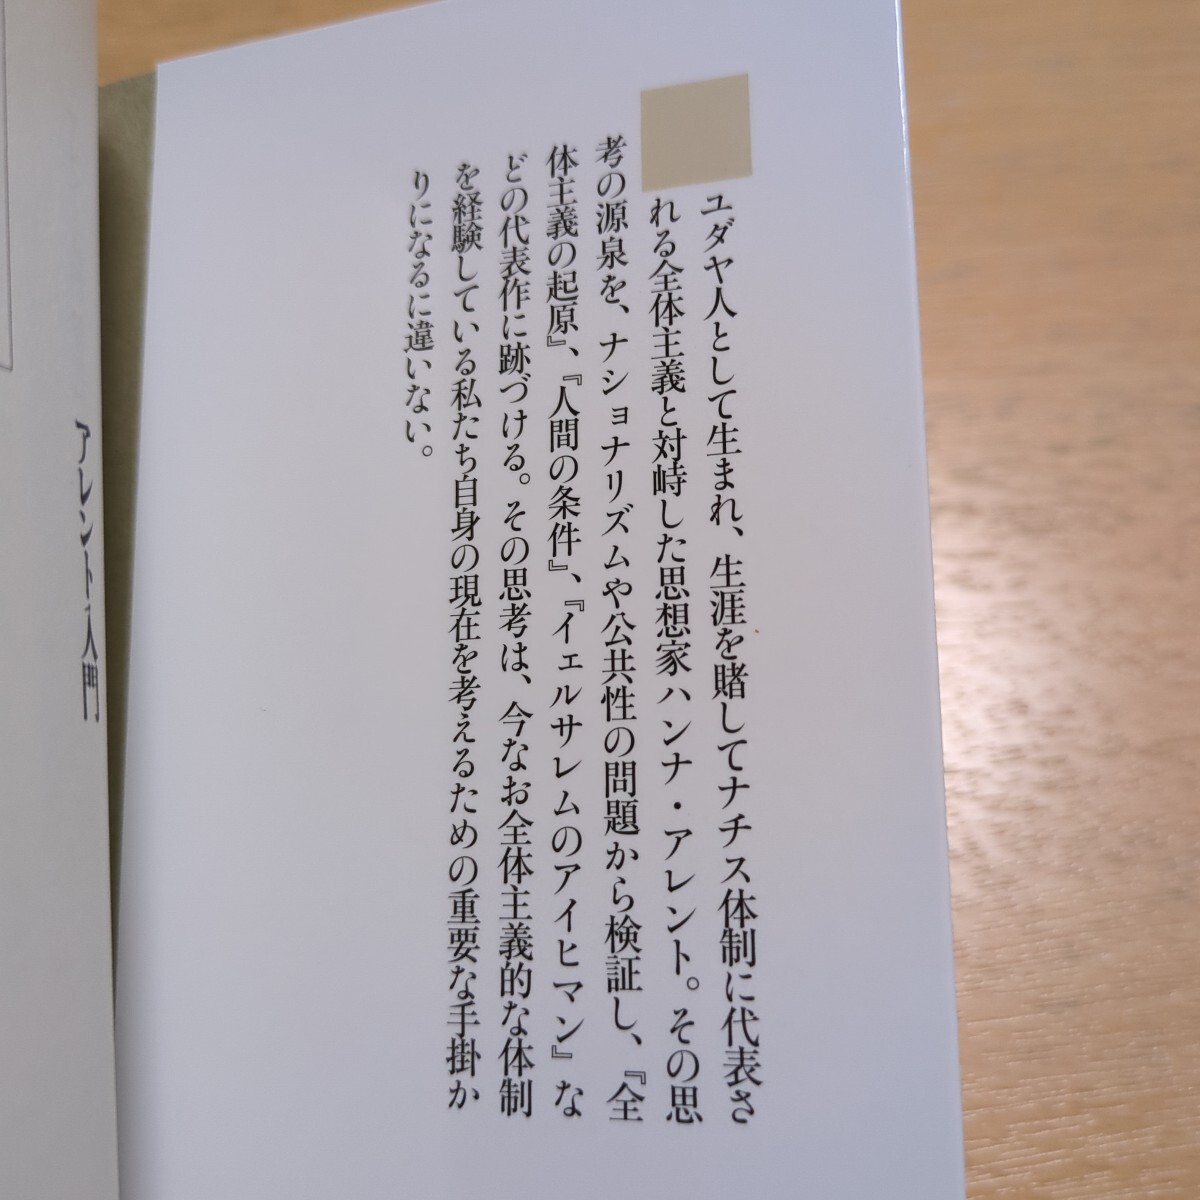 ユダヤ人として生まれ、生涯を賭してナチス体制に代表さ
れる全体主義と対峙した思想家ハンナ・アレント。その思
考の源泉を、ナショナリズムや公共性の問題から検証し、『全
体主義の起原』、『人間の条件』、『イェルサレムのアイヒマン』な
どの代表作に跡づける。その思考は、今なお全体主義的な体制
を経験している私たち自身の現在を考えるための重要な手掛か
りになるに違いない。
アレント入門